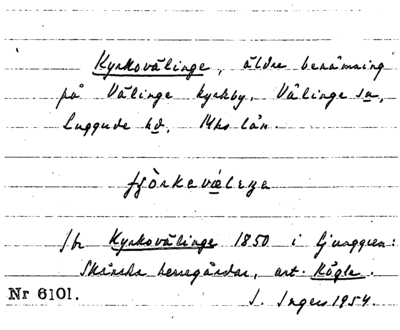 Kyrkovälinge, äldre benämning
på Välinge kyrkby, Välinge sn,
Luggude hd, Mhs län.
Jfr Kyrkovälinge 1850 i Ljunggren:
Skånska herregårdar, art. Rögle.
Nr 6101.
I. Ingers 1954.